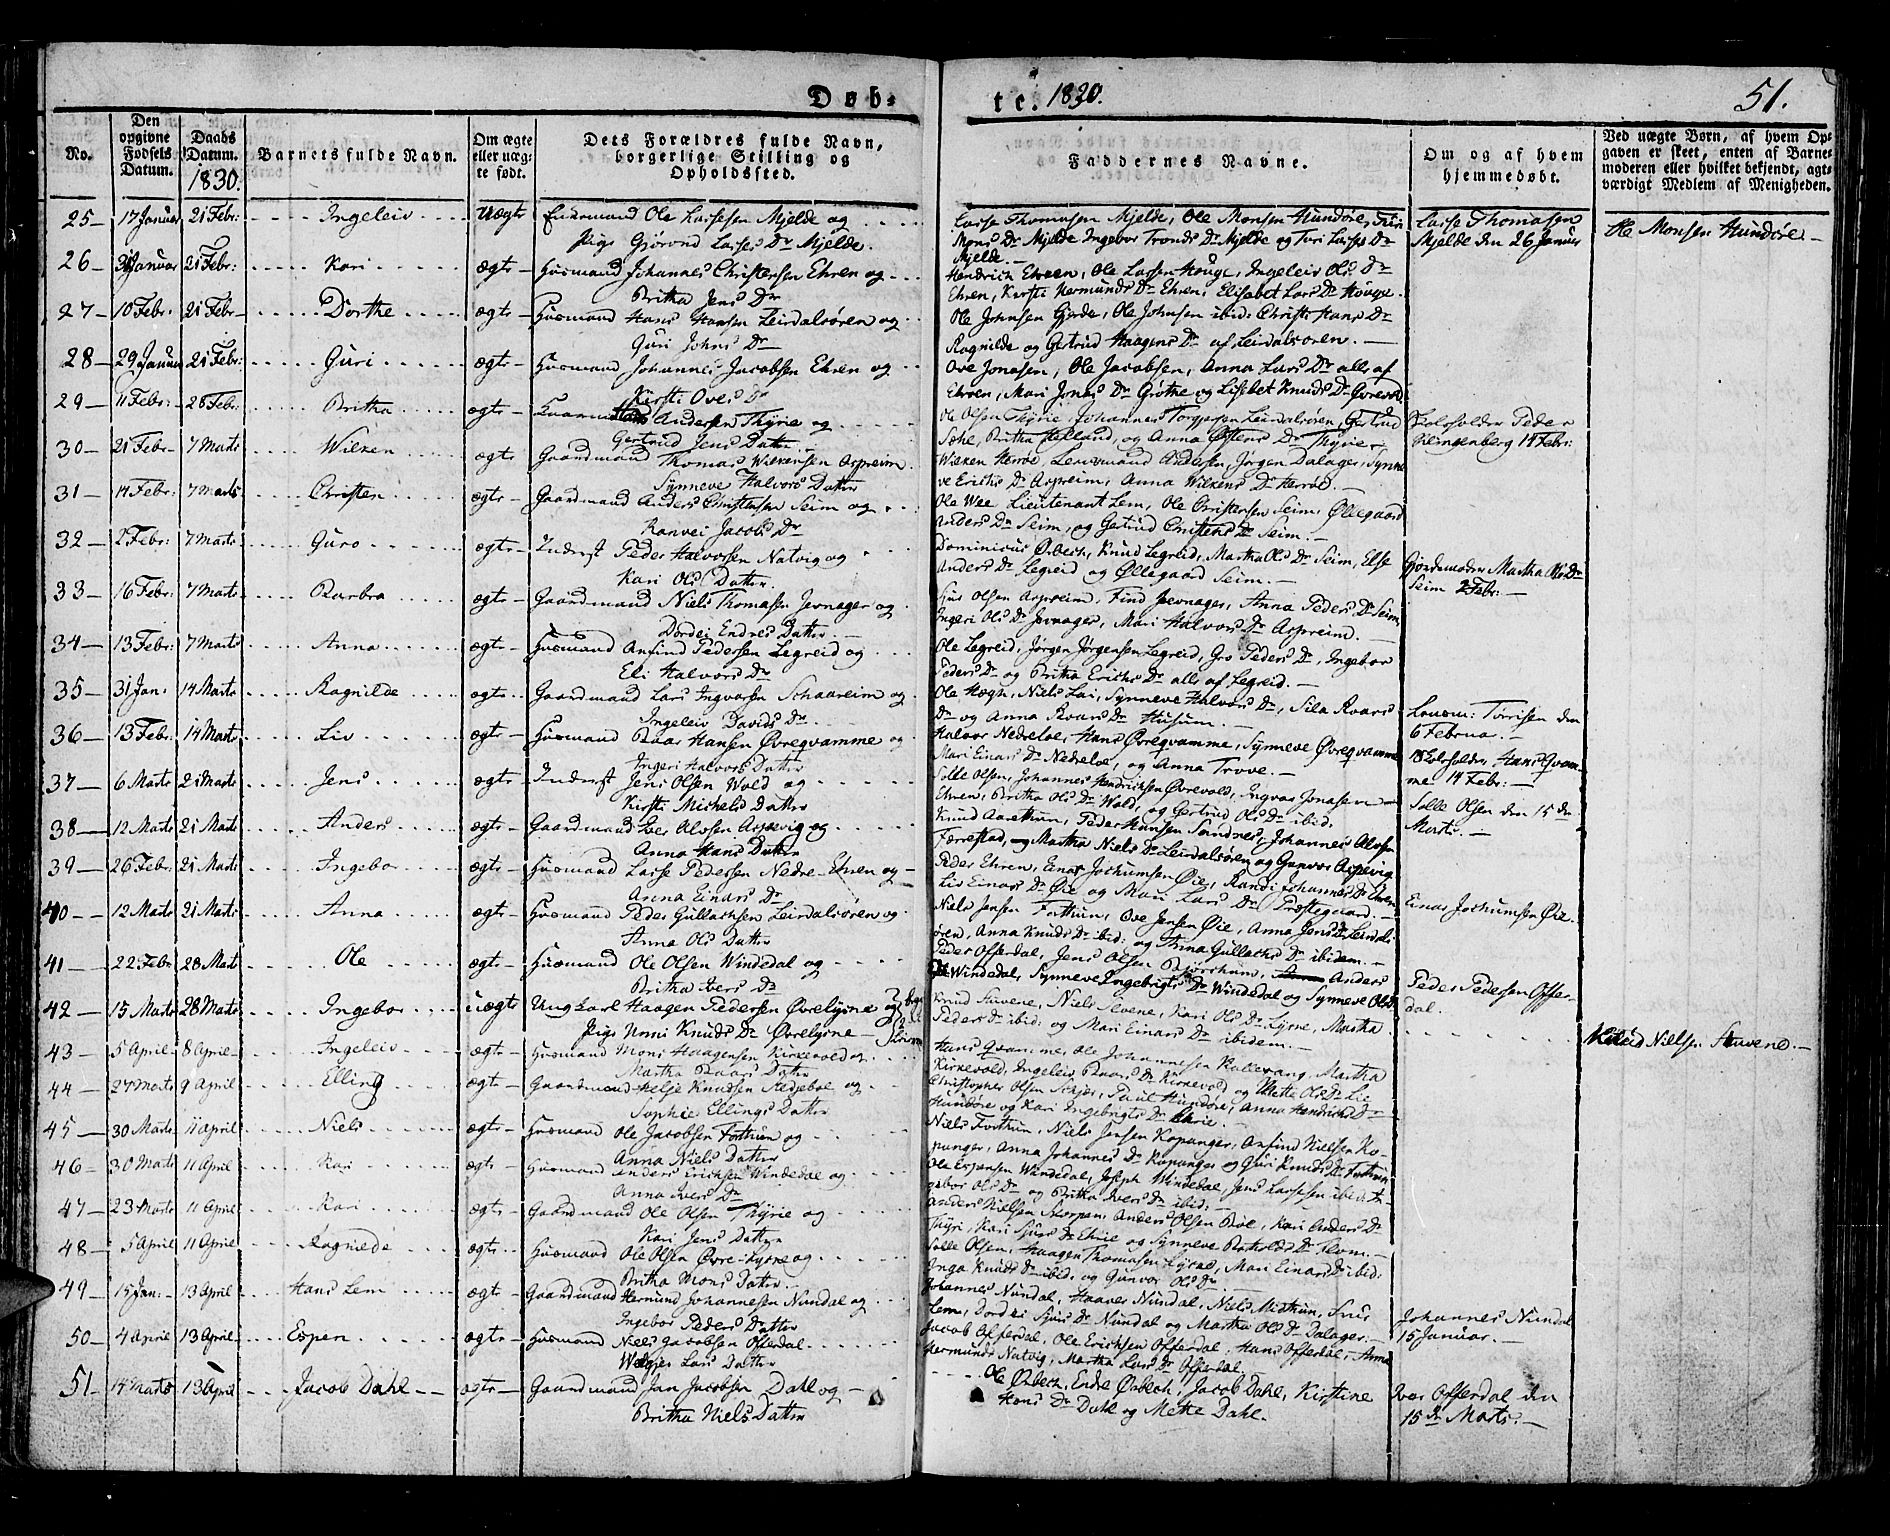 Døb-
te. 1830.
51.
No.
Den opgivne Fødsels Datum.
Daabs Datum. 1830.
Barnets fulde Navn.
Om ægte eller uæg- te født.
Dets Forældres fulde Navn, borgerlige Stilling og Opholdssted.
Faddernes Navne.
Om og af hvem hjemmedøbt.
Ved uægte Børn, af hvem Op- gaven er skeet, enten af Barne- moderen eller hvilket bekjendt, agt- værdigt Medlem af Menigheden.
25 17 Januar 21 Febr: Ingeleiv Uægte Ole Larsen Mjelde og
Pige Gjørond Larses Dr Mjelde.
Larse Thomasen Mjelde, Ole Monsen Hundøre, Turi
Mons Dr Mjelde Ingebor Tronds Dr Mjelde og Turi Larses Dr
Mjelde.
Larse Thomasen
Mjelde den 26 Januar
Ole Monsen Hundøre
26 Januar 21 Febr: Kari ægte Husmand Johannes Christensen Ehren og
Britha Jens Dr
Hendrich Ehren, Ole Larsen Houge, Ingeleiv Ols Dr
Ehren, Kirsti Hermunds Dr Ehren, Elisabet Lars Dr Houge.
27 10 Febr: 21 Febr Dorthe ægte Husmand Hans Hansen Leirdalsøren og
Guri Johns Dr
Ole Johnsen Gjerde, Ole Johnsen ibid: Christi Hans Dr
Ragnilde og Gertrud Haagens Dr af Leirdalsøren.
28 29 Januar 21 Febr: Guri ægte Husmand Johannes Jacobsen Ehren og
Kirsti Oves Dr
Ove Jonasen, Ole Jacobsen, Anna Lars Dr alle af
Ehren, Mari Jons Dr Grøthe og Lisebet Knuds Dr
29 11 Febr: 28 Febr: Britha ægte Andersen Thyrie og
Gertrud Jens Datter
Ole Olsen Thyrie, Johannes Torgersen Leirdalsøren, Gertrud
Britha Helland, og Anna Østens Dr Thyrie
Peder
Klingenberg 14 Febr:
30 21 Febr 7 Marts Wilken ægte Gaardmand Thomas Wilkensen Aspreim
Synneve Halvors Datter
Wilken Hereøe, Lensmand Andersen, Jørgen Dalager, Synne
ve Erichs Dr Aspreim, Anna Wilkens Dr Hereøe.
31 14 Febr: 7 Marts Christen ægte Gaardmand Anders Christensen Seim og
Ranvei Jacobs Dr
Ole Wee, Lieutenant Lem, Ole Christensen Seim, Øllegaard
Anders Dr Seim, og Gertrud Christens Dr Seim.
32 2 Febr: 7 Marts Guro ægte Inderst Peder Halvorsen Natvig og
Kari Ols Datter.
Dominicus Ørbech, Knud Legreid, Martha Ols Dr Seim, Else
Anders Dr Legreid og Øllegaard Seim.
Jordemoder Martha Ols Dr
Seim 2 Febr:
33 16 Febr: 7 Marts Barbra ægte Gaardmand Niels Thomasen Jevnager og
Dordei Endres Datter.
Siur Olsen Aspreim, Find Jevnager, Anna Peders Dr Seim
Ingeri Ols Dr Jevnager, Mari Halvors Dr Aspreim.
34 13 Febr: 7 Marts Anna ægte Husmand Anfind Pedersen Legreid og
Eli Halvors Dr
Ole Legreid, Jørgen Jørgensen Legreid, Gro Peders Dr, Ingebor
Peders Dr og Britha Erichs Dr alle af Legreid.
35 31 Jan: 14 Marts Ragnilde ægte Gaardmand Lars Ingvarsen Schaareim og
Ingeleiv Davids Dr
Ole Hægh, Niels Lai, Synneve Halvors Dr, Sila Roars
Dr og Anna Roars Dr Husum.
Lensm: Tørrisen den
6 Februa.
36 13 Febr: 14 Marts Liv ægte Husmand Roar Hansen Øvreqvamme og
Ingeri Halvors Datter
Halvor Nedreloe, Hans Øvreqvamme, Synneve Øvreqvamme
Mari Einars Dr Nedreloe, og Anna Trove.
Hans Qvam-
me 14 Febr:
37 6 Marts 21 Marts Jens ægte Inderst Jens Olsen Wold og
Kirsti Michels Datter
Solle Olsen, Johannes Hendrichsen Øvrevold, Ingvar Jonasen
Ehren, Britha Ols Dr Wold, og Gertrud Ols Dr ibid:
Solle Olsen den 15 de
Marts.
38 12 Marts 21 Marts Anders ægte Gaardmand Iver Alvsen Aspevig og
Anna Hans Datter
Knud Aarethun, Peder Hansen Sandnes, Johannes Alvsen
Færrestad, og Martha Niels Dr Leirdalsøren og Gunvor Aspevig
39 26 Febr: 21 Marts Ingebor ægte Husmand Larse Pedersen Nedre-Ehren og
Anna Einars Dr
Peder Ehren, Einar Jochumsen Øie, Randi Johannes Dr Ehren
Liv Einars Dr Øie og Mari Lars Dr Præstegaard.
Einar Jochumsen Øie.
40 12 Marts 21 Marts Anna ægte Husmand Peder Gullachsen Leirdalsøren og
Anna Ols Datter
Niels Jensen Forthun, Ove Jensen Øie, Anna Jens Dr Leirdals
øren, Anna Knuds Dr ibid: og Anna Gullachs Dr ibidem.
41 22 Febr 28 Marts Ole ægte Husmand Ole Olsen Windedal og
Britha Ivers Dr
Peder Offerdal, Jens Olsen Anders
Windedal, Synneve Ingebrigts Dr Windedal og Synneve Ols Dr
Peder Pedersen Offer-
dal.
42 15 Marts 28 Marts Ingebor uægte Ungkarl Haagen Pedersen Øvrelysne og
Pige Unni Knuds Dr Øvrelysne
Knud Stuvene, Niels Stuvene, Kari Ols Dr Lysne, Martha
Peders Dr ibid: og Mari Einars Dr ibidem.
Nielsen Stuvene.
43 5 April 8 April Ingeleiv ægte Husmand Mons Haagensen Kirkevold og
Martha Roars Datter
Hans Qvamme, Ole Johannesen Kallevang, Martha
Kirkevold, Ingeleiv Roars Dr Kirkevold og Mette Ols Dr Lie
44 27 Marts 9 April Elling ægte Gaardmand Helje Knudsen
Sophie Ellings Datter
Christopher Olsen Paul Hundøre, Anna Hendrichs Dr
Hundøre og Kari Ingebrigts Dr
45 30 Marts 11 April Niels ægte Husmand Ole Jacobsen Forthun og
Anna Niels Datter
Niels Forthun, Niels Jensen Kopanger, Anfind Nielsen Ko-
panger, Anna Johannes Dr Kopanger og Guri Knuds Dr Forthun
46 30 Marts 11 April Kari ægte Husmand Anders Erichsen Windedal og
Anna Ivers Dr
Ole Espensen Windedal, Joseph Windedal, Jens Larsesen ibid: In
gebor Ols Dr og Britha Ivers Dr ibid:
47 23 Marts 11 April Kari ægte Gaardmand Ole Olsen Thyrie og
Kari Jens Datter
Anders Nielsen Anders Olsen Kari Anders Dr
Thyri, Kari Sjurs Dr og Synneve Botholds Dr Flom.
48 5 April 11 April Ragnilde ægte Husmand Ole Olsen Øvre-Lysne og
Britha Mons Datter
Solle Olsen, Haagen Thomasen Lysne, Mari Einars Dr ibid:
Inga Knuds Dr ibid: og Gunvor Ols Dr
49 15 Jan: 13 April Hans Lem ægte Gaardmand Hermund Johannesen Nundal og
Ingebor Peders Dr
Johannes Nundal, Haaver Nundal, Niels Midthun,
Lem, Dordei Sjurs Dr Nundal og Martha Ols Dr Dalager.
Johannes Nundal
15 Januar.
50 4 April 13 April Espen ægte Husmand Niels Jacobsen Offerdal
Lars Datter
Jacob Offerdal, Ole Erichsen Offerdal, Hans Offerdal, Anna
Hermunds Natvig, Martha Lars Dr Offerdal.
51 14 Marts 13 April Jacob Dahl ægte Gaardmand Jan Jacobsen Dahl og
Britha Niels Datter
Ole Ørbech, Endre Ørbech, Jacob Dahl, Kirstine
Hans Dr Dahl og Mette Dahl.
Iver Offerdal den
15 de Marts.